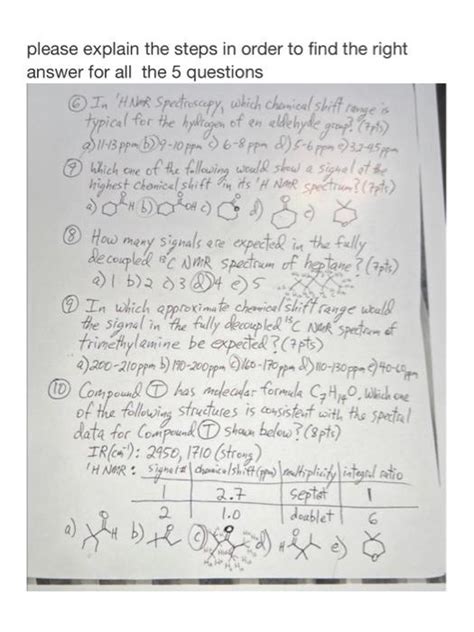 please explain the steps in order to find the right
answer for all the 5 questions
⑥ In ¹H NMR Spectroscopy, which chemical shift range is
typical for the hydrogen of an aldehyde group? (7pts)
a) 11-13 ppm b) 9-10 ppm c) 6-8 ppm d) 5-6 ppm e) 3.2-4.5 ppm
Which one of the following would show a signal at the
highest chemical shift in its ¹H NMR spectrum? (7pts)
a) H b) OH c) d) e)
⑧ How many signals are expected in the fully
decoupled ¹³C NMR spectrum of heptane? (7pts)
a) 1 b) 2 c) 3 d) 4 e) 5
⑨ In which approximate chemical shift range would
the signal in the fully decoupled ¹³C NMR spectrum of
trimethylamine be expected? (7pts)
a) 200-210ppm b) 190-200ppm c) 160-170ppm d) 110-130ppm e) 40-60ppm
⑩ Compound Ⓣ has molecular formula C₇H₁₄O. Which one
of the following structures is consistent with the spectral
data for Compound Ⓣ shown below? (8pts)
IR(cm⁻¹): 2950, 1710 (strong)
¹H NMR: signal # chemical shift (ppm) multiplicity integral ratio
1 2.7 septet 1
2 1.0 doublet 6
a) H b) c) d) H e)